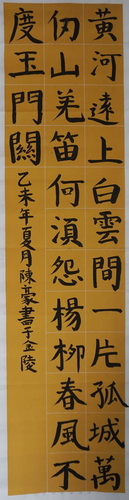 黃河遠上白雲間一片孤城萬
仞山羌笛何須怨楊柳春風不
度玉門關
乙未年夏月陳豪書于金陵